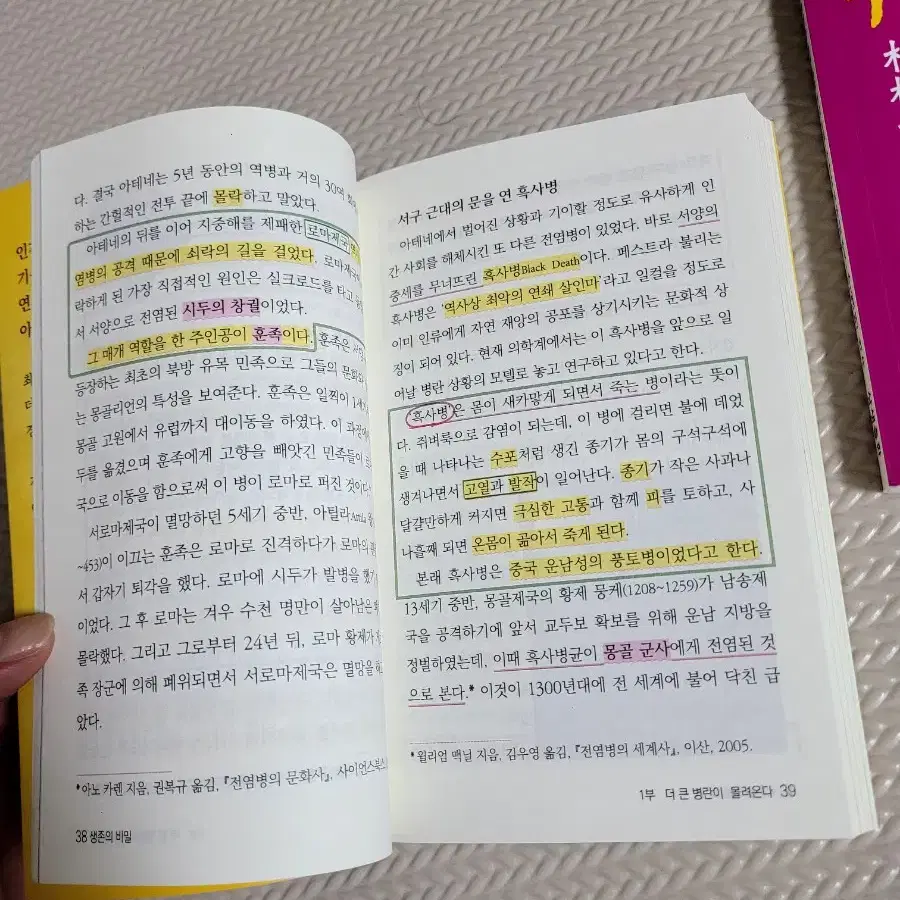 다. 결국 아테네는 5년 동안의 역병과 거의 30여
하는 간헐적인 전투 끝에 몰락하고 말았다.
아테네의 뒤를 이어 지중해를 제패한 로마제국
염병의 공격 때문에 쇠락의 길을 걸었다. 로마제국
락하게 된 가장 직접적인 원인은 실크로드를 타고
서 서양으로 전염된 시두의 창궐이었다.
그 매개 역할을 한 주인공이 훈족이다. 훈족은
등장하는 최초의 북방 유목 민족으로 그들의 문화
는 몽골리언의 특성을 보여준다. 훈족은 일찍이 1세
몽골 고원에서 유럽까지 대이동을 하였다. 이 과정에
두를 옮겼으며 훈족에게 고향을 빼앗긴 민족들이
국으로 이동을 함으로써 이 병이 로마로 퍼진 것이다.
서로마제국이 멸망하던 5세기 중반, 아틸라
~453)이 이끄는 훈족은 로마로 진격하다가 로마의
서 갑자기 퇴각을 했다. 로마에 시두가 발병을 했
이었다. 그 후 로마는 겨우 수천 명만이 살아남은
몰락했다. 그리고 그로부터 24년 뒤, 로마 황제가
족 장군에 의해 폐위되면서 서로마제국은 멸망을
았다.
*아노 카렌 지음, 권복규 옮김, 『전염병의 문화사』, 사이언스북스
38 생존의 비밀
서구 근대의 문을 연 흑사병
아테네에서 벌어진 상황과 기이할 정도로 유사하게 인
간 사회를 해체시킨 또 다른 전염병이 있었다. 바로 서양의
중세를 무너뜨린 흑사병Black Death이다. 페스트라 불리는
흑사병은 '역사상 최악의 연쇄 살인마'라고 일컬을 정도로
이미 인류에게 자연 재앙의 공포를 상기시키는 문화적 상
징이 되어 있다. 현재 의학계에서는 이 흑사병을 앞으로 일
어날 병란 상황의 모델로 놓고 연구하고 있다고 한다.
'흑사병'은 몸이 새카맣게 되면서 죽는 병이라는 뜻이
다. 쥐벼룩으로 감염이 되는데, 이 병에 걸리면 불에 데었
을 때 나타나는 수포처럼 생긴 종기가 몸의 구석구석에
생겨나면서 고열과 발작이 일어난다. 종기가 작은 사과나
달걀만하게 커지면 극심한 고통과 함께 피를 토하고, 사
나흘째 되면 온몸이 곪아서 죽게 된다.
본래 흑사병은 중국 운남성의 풍토병이었다고 한다.
13세기 중반, 몽골제국의 황제 뭉케(1208~1259)가 남송제
국을 공격하기에 앞서 교두보 확보를 위해 운남 지방을
정벌하였는데, 이때 흑사병균이 몽골 군사에게 전염된 것
으로 본다.* 이것이 1300년대에 전 세계에 불어 닥친 급
*윌리엄 맥닐 지음, 김우영 옮김, 『전염병의 세계사』, 이산, 2005.
1부 더 큰 병란이 몰려온다 39